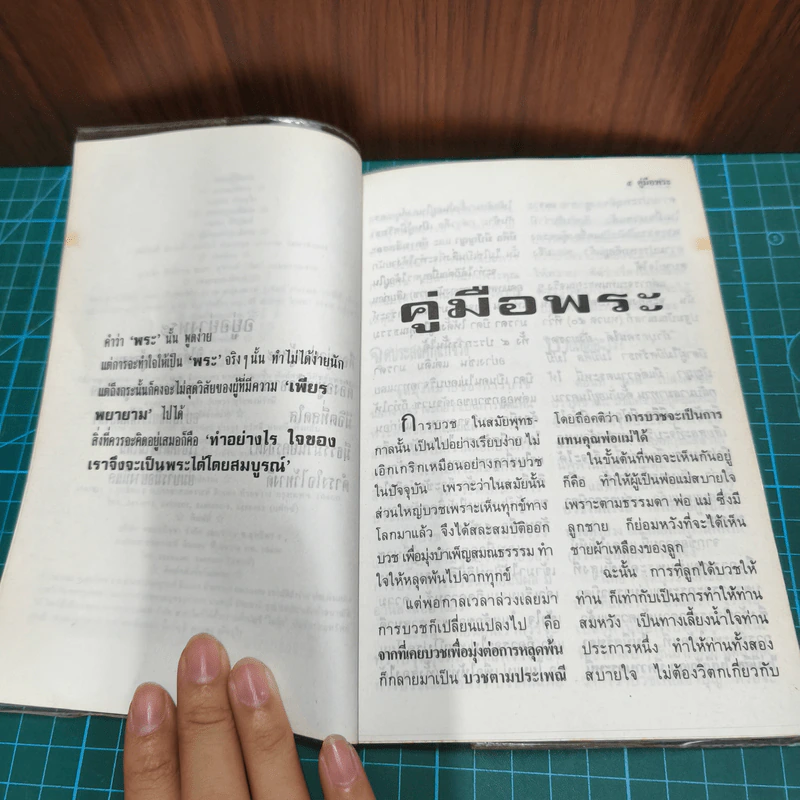 คำว่า 'พระ' นั้น พูดง่าย
แต่การจะทำใจให้เป็น 'พระ' จริงๆ นั้น ทำไม่ได้ง่ายนัก
แต่ถึงกระนั้นก็คงจะไม่สุดวิสัยของผู้ที่มีความ 'เพียร
พยายาม' ไปได้
สิ่งที่ควรจะคิดอยู่เสมอก็คือ 'ทำอย่างไร ใจของ
เราจึงจะเป็นพระได้โดยสมบูรณ์'
คู่มือพระ
คู่มือพระ
การบวช ในสมัยพุทธ-
กาลนั้น เป็นไปอย่างเรียบง่าย ไม่
เอิกเกริกเหมือนอย่างการบวช
ในปัจจุบัน เพราะว่าในสมัยนั้น
ส่วนใหญ่บวชเพราะเห็นทุกข์ทาง
โลกมาแล้ว จึงได้สละสมบัติออก
บวช เพื่อมุ่งบำเพ็ญสมณธรรรม ทำ
ใจให้หลุดพ้นไปจากทุกข์
แต่พอกาลเวลาล่วงเลยมา
การบวชก็เปลี่ยนแปลงไป คือ
จากที่เคยบวชเพื่อมุ่งต่อการหลุดพ้น
ก็กลายมาเป็น บวชตามประเพณี
โดยถือคติว่า การบวชจะเป็นการ
แทนคุณพ่อแม่ได้
ในขั้นต้นที่พอจะเห็นกันอยู่
ก็คือ ทำให้ผู้เป็นพ่อแม่สบายใจ
เพราะตามธรรมดา พ่อ แม่ ซึ่งมี
ลูกชาย ก็ย่อมหวังที่จะได้เห็น
ชายผ้าเหลืองของลูก
ฉะนั้น การที่ลูกได้บวชให้
ท่าน ก็เท่ากับเป็นการทำให้ท่าน
สมหวัง เป็นทางเลี้ยงน้ำใจท่าน
ประการหนึ่ง ทำให้ท่านทั้งสอง
สบายใจ ไม่ต้องวิตกเกี่ยวกับ